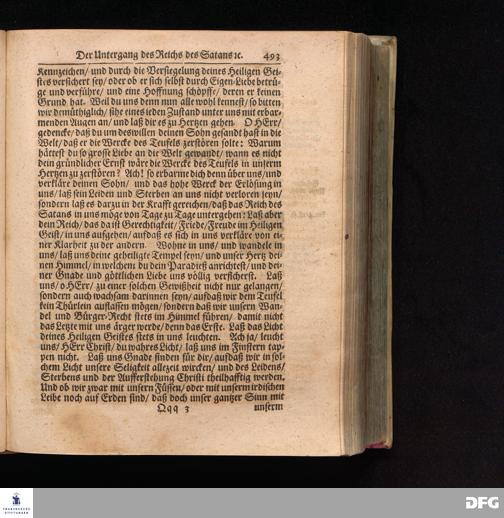 Der Untergang des Reichs des Satans ꝛc. 493
Kennzeichen/ und durch die Versiegelung deines Heiligen Gei-
stes versichert sey/ oder ob er sich selbst durch Eigen-Liebe betrü-
ge und verführe/ und eine Hoffnung schöpffe/ deren er keinen
Grund hat. Weil du uns denn nun alle wohl kennest/ so bitten
wir demüthiglich/ sihe eines ieden Zustand unter uns mit erbar-
menden Augen an/ und laß dir es zu Hertzen gehen. O HErr/
gedencke/ daß du um deswillen deinen Sohn gesandt hast in die
Welt/ daß er die Wercke des Teufels zerstören solte: Warum
hättest du so grosse Liebe an die Welt gewandt/ wann es nicht
dein gründlicher Ernst wäre die Wercke des Teufels in unserm
Hertzen zu zerstören? Ach! so erbarme dich denn über uns/ und
verkläre deinen Sohn/ und das hohe Werck der Erlösung in
uns/ laß sein Leiden und Sterben an uns nicht verloren seyn/
sondern laß es darzu in der Krafft gereichen/ daß das Reich des
Satans in uns möge von Tage zu Tage untergehen: Laß aber
dein Reich/ das da ist Gerechtigkeit/ Friede/ Freude im Heiligen
Geist/ in uns aufgehen/ aufdaß es sich in uns verkläre von ei-
ner Klarheit zu der andern. Wohne in uns/ und wandele in
uns/ laß uns deine geheiligte Tempel seyn/ und unser Hertz dei-
nen Himmel/ in welchem du dein Paradieß anrichtest/ und dei-
ner Gnade und göttlichen Liebe uns völlig versicherst. Laß
uns/ o HErr/ zu einer solchen Gewißheit nicht nur gelangen/
sondern auch wachsam darinnen seyn/ aufdaß wir dem Teufel
kein Thürlein auflassen mögen/ sondern daß wir unsern Wan-
del und Bürger-Recht stets im Himmel führen/ damit nicht
das Letzte mit uns ärger werde/ denn das Erste. Laß das Licht
deines Heiligen Geistes stets in uns leuchten. Ach ja/ leucht
uns/ HErr Christ/ du wahres Licht/ laß uns im Finstern tap-
pen nicht. Laß uns Gnade finden für dir/ aufdaß wir in sol-
chem Licht unsere Seligkeit allezeit wircken/ und des Leidens/
Sterbens und der Aufferstehung Christi theilhafftig werden.
Und ob wir zwar mit unsern Füssen/ oder mit unserm irdischen
Leibe noch auf Erden sind/ daß doch unser gantzer Sinn mit
Qqq 3 unserm
FRANCKESCHE
STIFTUNGEN
DFG